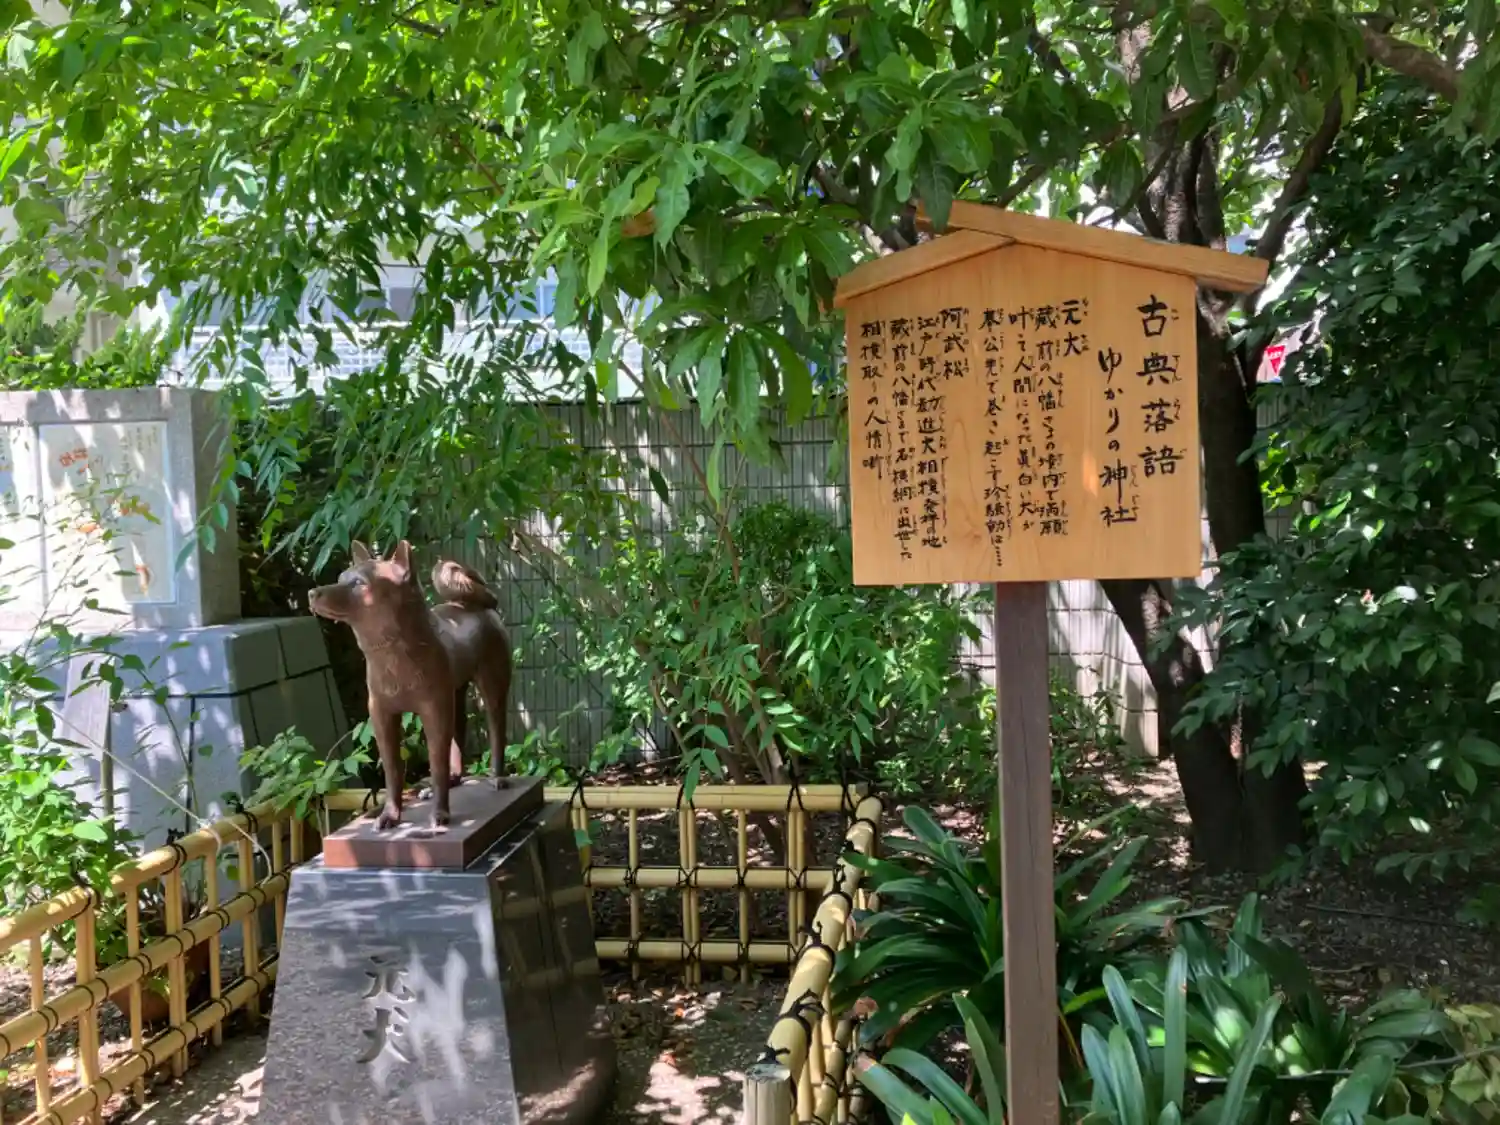 古典落語
ゆかりの神社
元犬
蔵前の八幡さまの境内で満願
叶って人間になった真白い犬が
奉公先で巻き起こす珍騒動は……
阿武松
江戸時代勧進大相撲発祥の地
蔵前の八幡さまで名横綱に出世した
相撲取りの人情噺
元犬